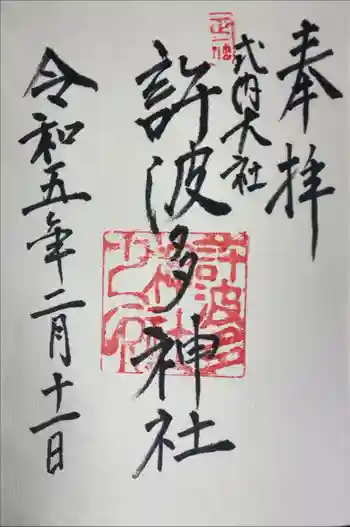 奉拝
正一位
式内大社
許波多神社
許波多
神社
令和五年二月十一日